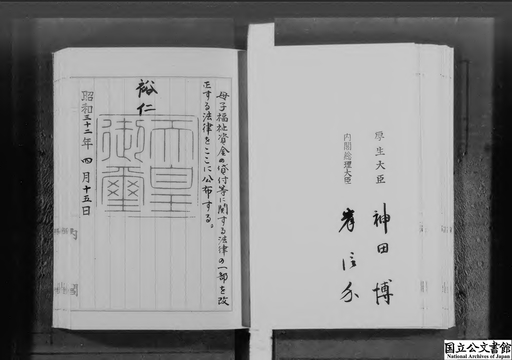 母子福祉資金の貸付等に関する法律の一部を改
正する法律をここに公布する。
裕仁
天皇
御璽
昭和三十二年四月十五日
厚生大臣 神田博
内閣総理大臣 岸信介
国立公文書館
National Archives of Japan